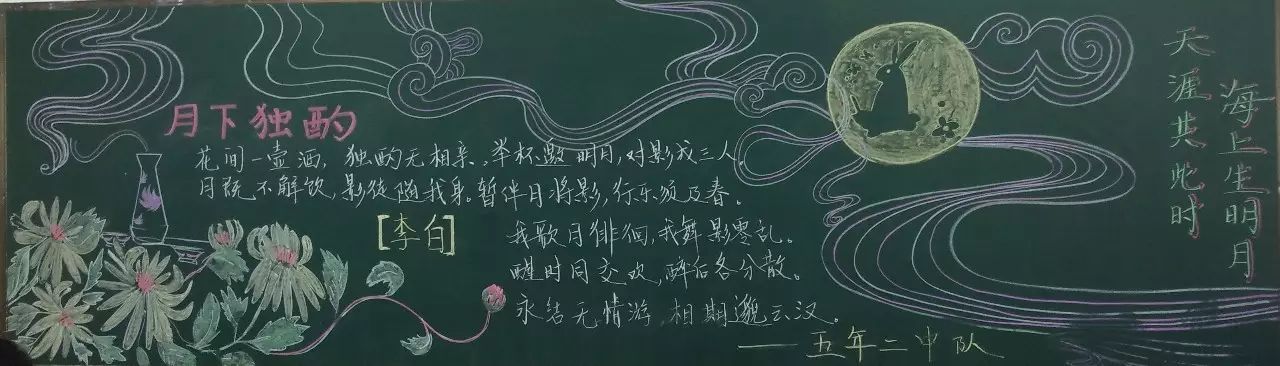 月下独酌
花间一壶酒，独酌无相亲，举杯邀明月，对影成三人。
月既不解饮，影徒随我身。暂伴月将影，行乐须及春。
[李白]
我歌月徘徊，我舞影零乱。
醒时同交欢，醉后各分散。
永结无情游，相期邈云汉。
——五年二中队
海上生明月
天涯共此时